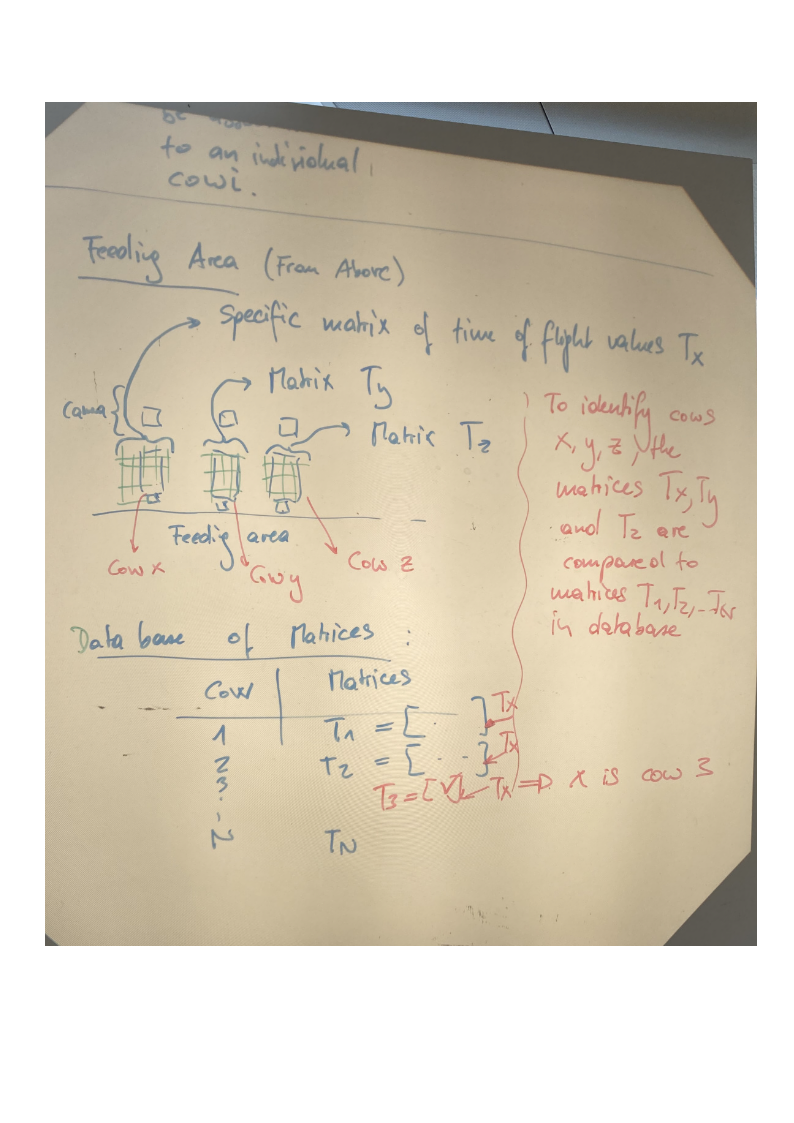 to an individual
cowi.
Feeding Area (From Above)
Specific matrix of time of flight values Tx
Matrix Ty
Matrix Tz
Feedig area
Cow x
Cow y
Cow z
To identify cows
x, y, z, the
matrices Tx, Ty
and Tz are
compared to
matrices T1, T2, -- TN
in database
Data base of Matrices :
Cow Matrices
1 T1 = [ · ] Tx
2 T2 = [ · - ] Tx
3 T3 = [ √ ] Tx ⇒ x is cow 3
N TN